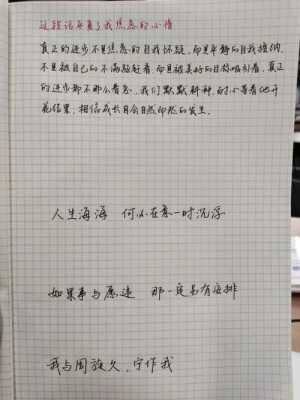 这段话平复了我焦虑的心情
真正的进步不是焦虑的自我怀疑，而是平静的自我接纳，
不是被自己的不满驱赶着，而是被美好的目标吸引着，真正
的进步都不那么着急，我们默默耕种，耐心等着他开
花结果，相信成长自会自然而然的发生。
人生海海 何必在意一时沉浮
如果事与愿违 那一定另有安排
我与周旋久，宁作我